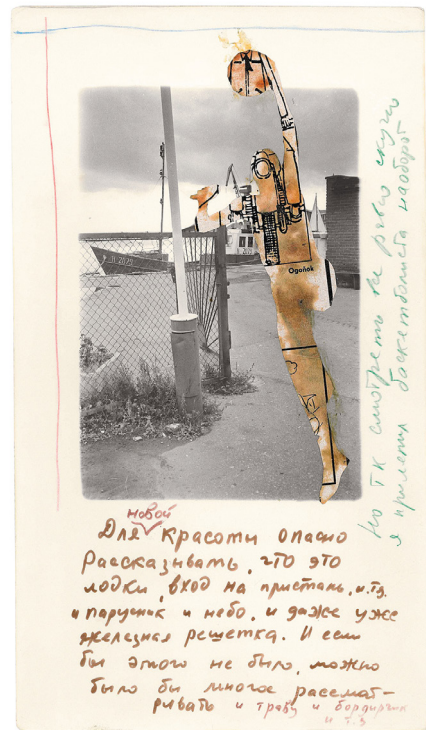 Ogoňok
Но тк смотреть все равно скучно
я прилепил баскетболиста наоборот
новой
Для красоты опасно
рассказывать, что это
лодки, вход на пристань, и.т.д.
и парусник и небо, и даже уже
железная решетка. И если
бы этого не было, можно
было бы многое рассмат-
ривать и траву и бордюрчик
и т.д.